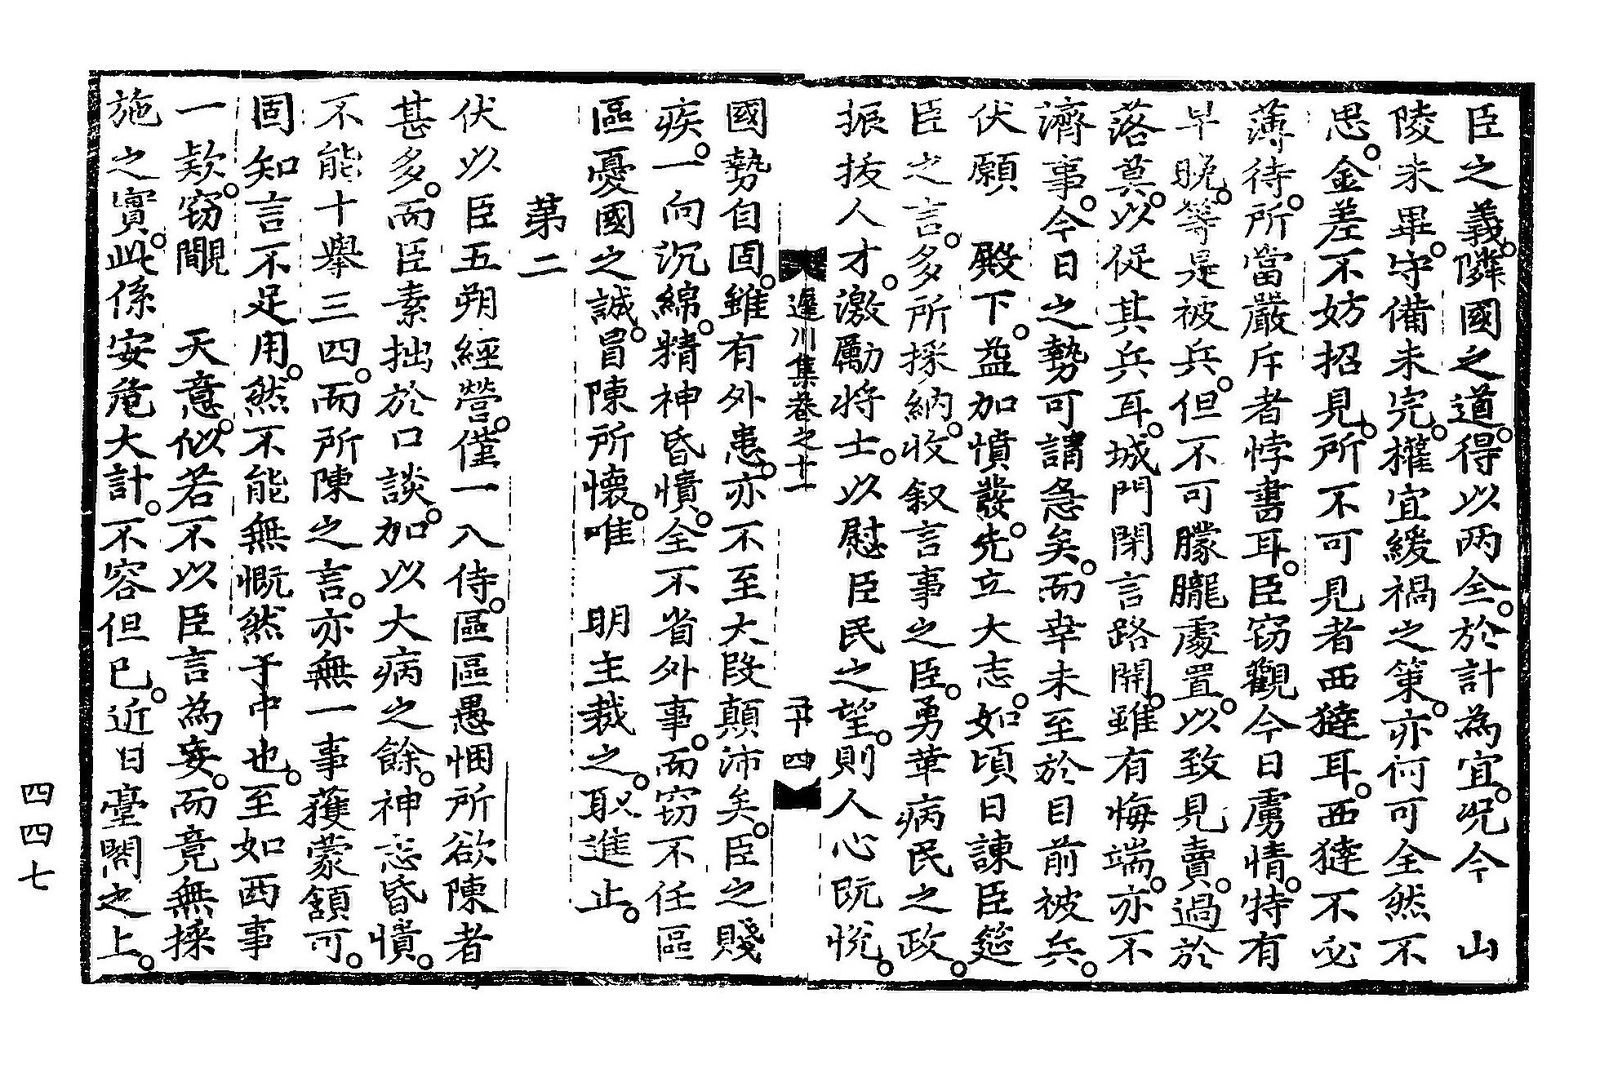 臣之義。隣國之道。得以两全。於計為宜。况今　山
陵未畢。守備未完。權宜緩禍之策。亦何可全然不
思。金差不妨招見。所不可見者西㺚耳。西㺚不必
薄待。所當嚴斥者悖書耳。臣窃觀今日虜情。特有
早晚。等是被兵。但不可朦朧處置。以致見賣。過於
落莫。以促其兵耳。城門閉言路開。雖有悔端。亦不
濟事。今日之勢可謂急矣。而幸未至於目前被兵。
伏願　殿下。益加憤發。先立大志。如頃日諫臣筵
臣之言。多所採納。收叙言事之臣。勇革病民之政。
振拔人才。激勵將士。以慰臣民之望。則人心旣悅。
遲川集卷之十一　二十四
國勢自固。雖有外患。亦不至大段顛沛矣。臣之賤
疾。一向沉綿。精神昏憒。全不省外事。而窃不任區
區憂國之誠。冒陳所懷。唯　明主裁之。取進止。
第二
伏以臣五朔經營。僅一入侍。區區愚悃所欲陳者
甚多。而臣素拙於口談。加以大病之餘。神志昏憒。
不能十擧三四。而所陳之言。亦無一事獲蒙頷可。
固知言不足用。然不能無慨然于中也。至如西事
一款。窃覵　天意。似若不以臣言為妄。而竟無採
施之實。此係安危大計。不容但已。近日臺閣之上。
四四七